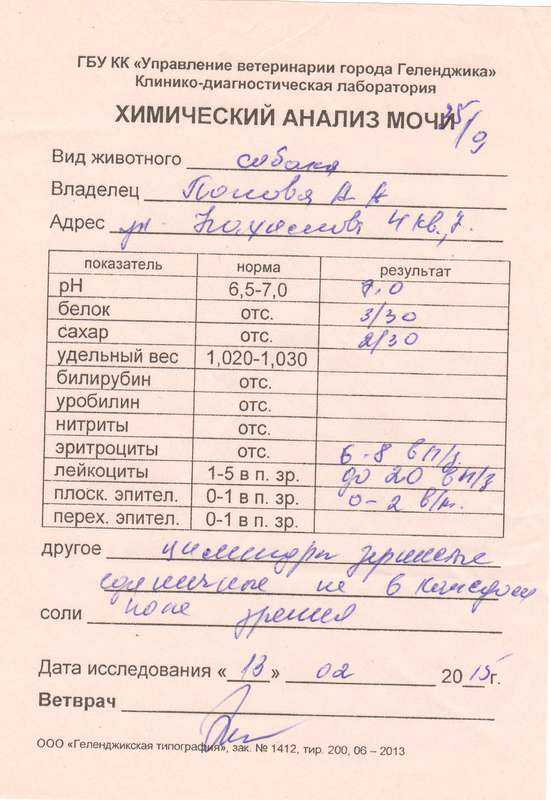 ГБУ КК «Управление ветеринарии города Геленджика»
Клинико-диагностическая лаборатория
ХИМИЧЕСКИЙ АНАЛИЗ МОЧИ 25/9
Вид животного собака
Владелец Попова А А
Адрес ул 4 кв., 7.
показатель норма результат
pH 6,5-7,0 7,0
белок отс. 3/30
сахар отс. 2/30
удельный вес 1,020-1,030
билирубин отс.
уробилин отс.
нитриты отс.
эритроциты отс. 6-8 в п/з
лейкоциты 1-5 в п. зр. до 20 в п/з
плоск. эпител. 0-1 в п. зр. 0-2 в/п.
перех. эпител. 0-1 в п. зр.
другое цилиндры зернистые
единичные не в каждом
соли поле зрения
Дата исследования «13» 02 2015г.
Ветврач
ООО «Геленджикская типография», зак. № 1412, тир. 200, 06 – 2013